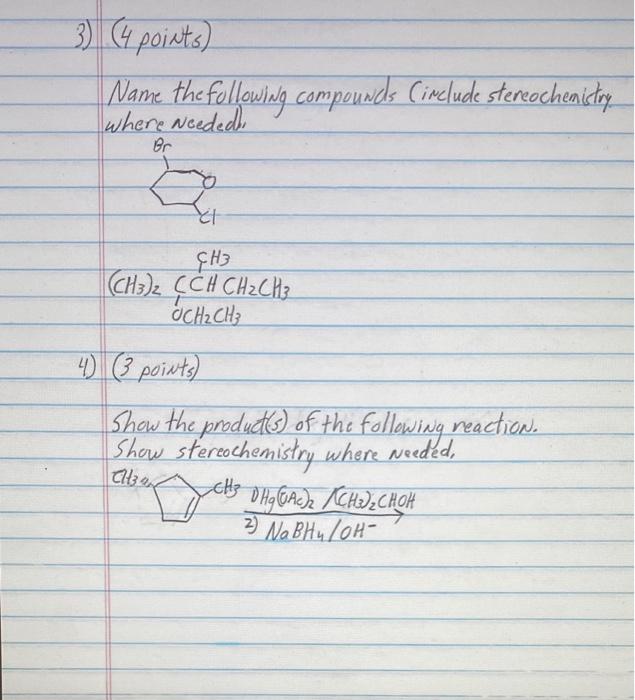 3) (4 points)
Name the following compounds (include stereochemistry
where needed).
Br
O
Cl
CH3
(CH3)2 CCH CH2CH3
OCH2CH3
4) (3 points)
Show the product(s) of the following reaction.
Show stereochemistry where needed.
CH3
CH3
1) Hg(OAc)2 / (CH3)2CHOH
2) NaBH4 / OH-